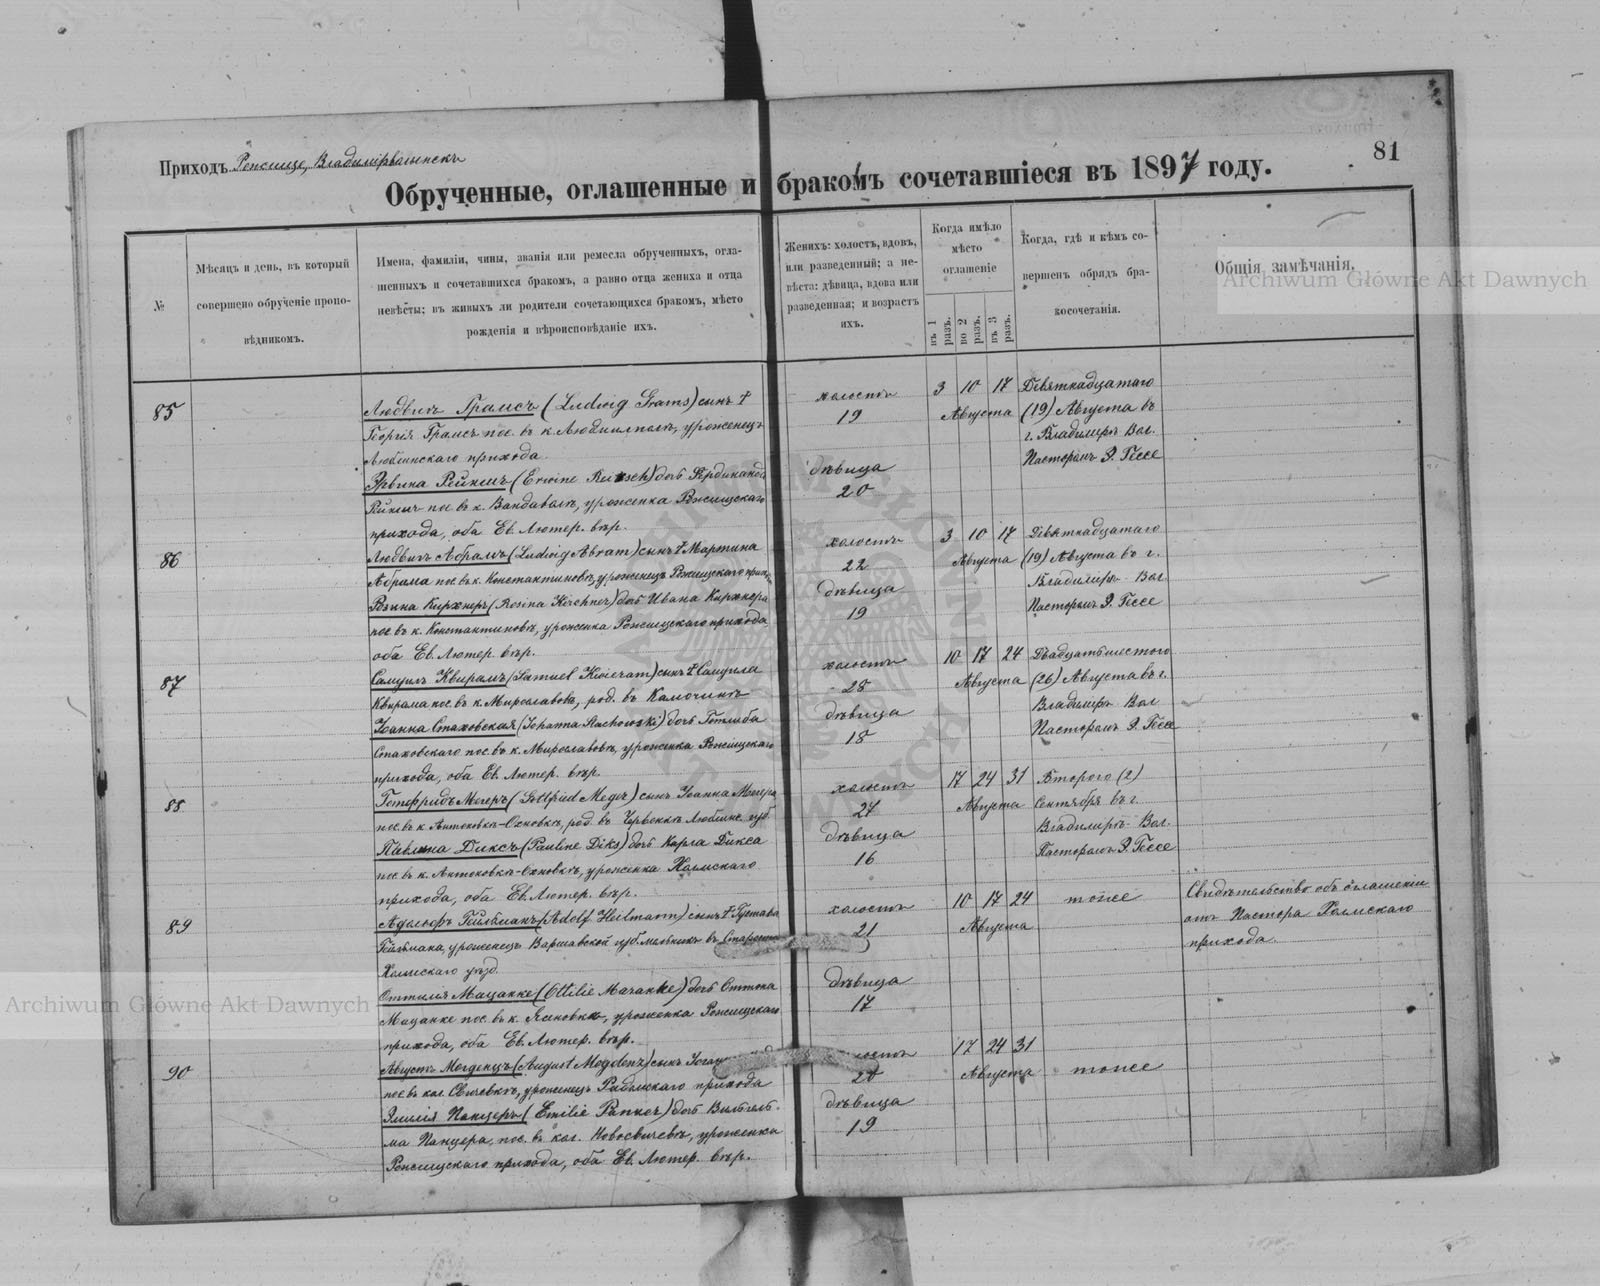 81
Приходъ Рожище, Владимірволынскъ
Обрученные, оглашенные и бракомъ сочетавшіеся въ 1897 году.
№
Мѣсяцъ и день, въ который
совершено обрученіе пропо-
вѣдникомъ.
Имена, фамиліи, чины, званія или ремесла обрученныхъ, огла-
шенныхъ и сочетавшихся бракомъ, а равно отца жениха и отца
невѣсты; въ живыхъ ли родители сочетающихся бракомъ, мѣсто
рожденія и вѣроисповѣданіе ихъ.
Женихъ: холостъ, вдовъ,
или разведенный; а не-
вѣста: дѣвица, вдова или
разведенная; и возрастъ
ихъ.
Когда имѣло
мѣсто
оглашеніе
въ 1 разъ.
во 2 разъ.
въ 3 разъ.
Когда, гдѣ и кѣмъ со-
вершенъ обрядъ бра-
косочетанія.
Общія замѣчанія.
Archiwum Główne Akt Dawnych
85
Людвигъ Грамсъ (Ludwig Grams) сынъ †
Георгія Грамсъ пос. въ к. Людмилполъ, уроженецъ
Люблинскаго прихода.
Эрвина Рейншъ (Erwine Reinsch) дочь Фердинанда
Рейншъ пос. въ к. Вандаволъ, уроженка Рожищскаго
прихода, оба Ев. Лютер. вѣр.
холостъ
19
дѣвица
20
3 10 17
Августа
Девятнадцатаго
(19) Августа въ
г. Владимірѣ Вол.
Пасторомъ Э. Гессе
86
Людвигъ Абрамъ (Ludwig Abram) сынъ † Мартина
Абрама пос. въ к. Константиновкѣ, уроженецъ Рожищскаго прихода
Розина Кирхнеръ (Rosina Kirchner) дочь Ивана Кирхнера
пос. въ к. Константиновкѣ, уроженка Рожищскаго прихода,
оба Ев. Лютер. вѣр.
холостъ
22
дѣвица
19
3 10 17
Августа
Девятнадцатаго
(19) Августа въ г.
Владимірѣ Вол.
Пасторомъ Э. Гессе
87
Самуилъ Квирамъ (Samuel Kwieram) сынъ † Самуила
Квирама пос. въ к. Мирославовкѣ, род. въ Камочинѣ
Іоанна Стаховская (Johanna Stachowski) дочь Готлиба
Стаховскаго пос. въ к. Мирославовкѣ, уроженка Рожищскаго
прихода, оба Ев. Лютер. вѣр.
холостъ
28
дѣвица
18
10 17 24
Августа
Двадцатьшестого
(26) Августа въ г.
Владимірѣ Вол
Пасторомъ Э. Гессе
88
Готфридъ Мегеръ (Gottfried Meger) сынъ Іоанна Мегера
пос. въ к. Антоновкѣ-Охновкѣ, род. въ Червонкѣ Люблинс. губ.
Павлина Диксъ (Pauline Diks) дочь Карла Дикса
пос. въ к. Антоновкѣ-Охновкѣ, уроженка Холмскаго
прихода, оба Ев. Лютер. вѣр.
холостъ
24
дѣвица
16
17 24 31
Августа
Второго (2)
Сентября въ г.
Владимірѣ Вол.
Пасторомъ Э. Гессе
89
Адольфъ Гейльманъ (Adolf Heilmann) сынъ † Густава
Гейльмана, уроженецъ Варшавской губ. мельникъ въ
Холмскаго уѣзд.
Оттилія Мацанке (Ottilie Mazanke) дочь Оттона
Мацанке пос. въ к. Яновка, уроженка Рожищскаго
прихода, оба Ев. Лютер. вѣр.
холостъ
21
дѣвица
17
10 17 24
Августа
тоже
Свидѣтельство объ оглашеніи
отъ Пастора Холмскаго
прихода.
Archiwum Główne Akt Dawnych
90
Августъ Могденцъ (August Mogdenz) сынъ
пос. въ кол. Свичевкѣ, уроженецъ Радомскаго прихода
Эмилія Панцеръ (Emilie Panzer) дочь Вильгель-
ма Панцера, пос. въ кол. Новосвичевкѣ, уроженка
Рожищскаго прихода, оба Ев. Лютер. вѣр.
холостъ
20
дѣвица
19
17 24 31
Августа
тоже